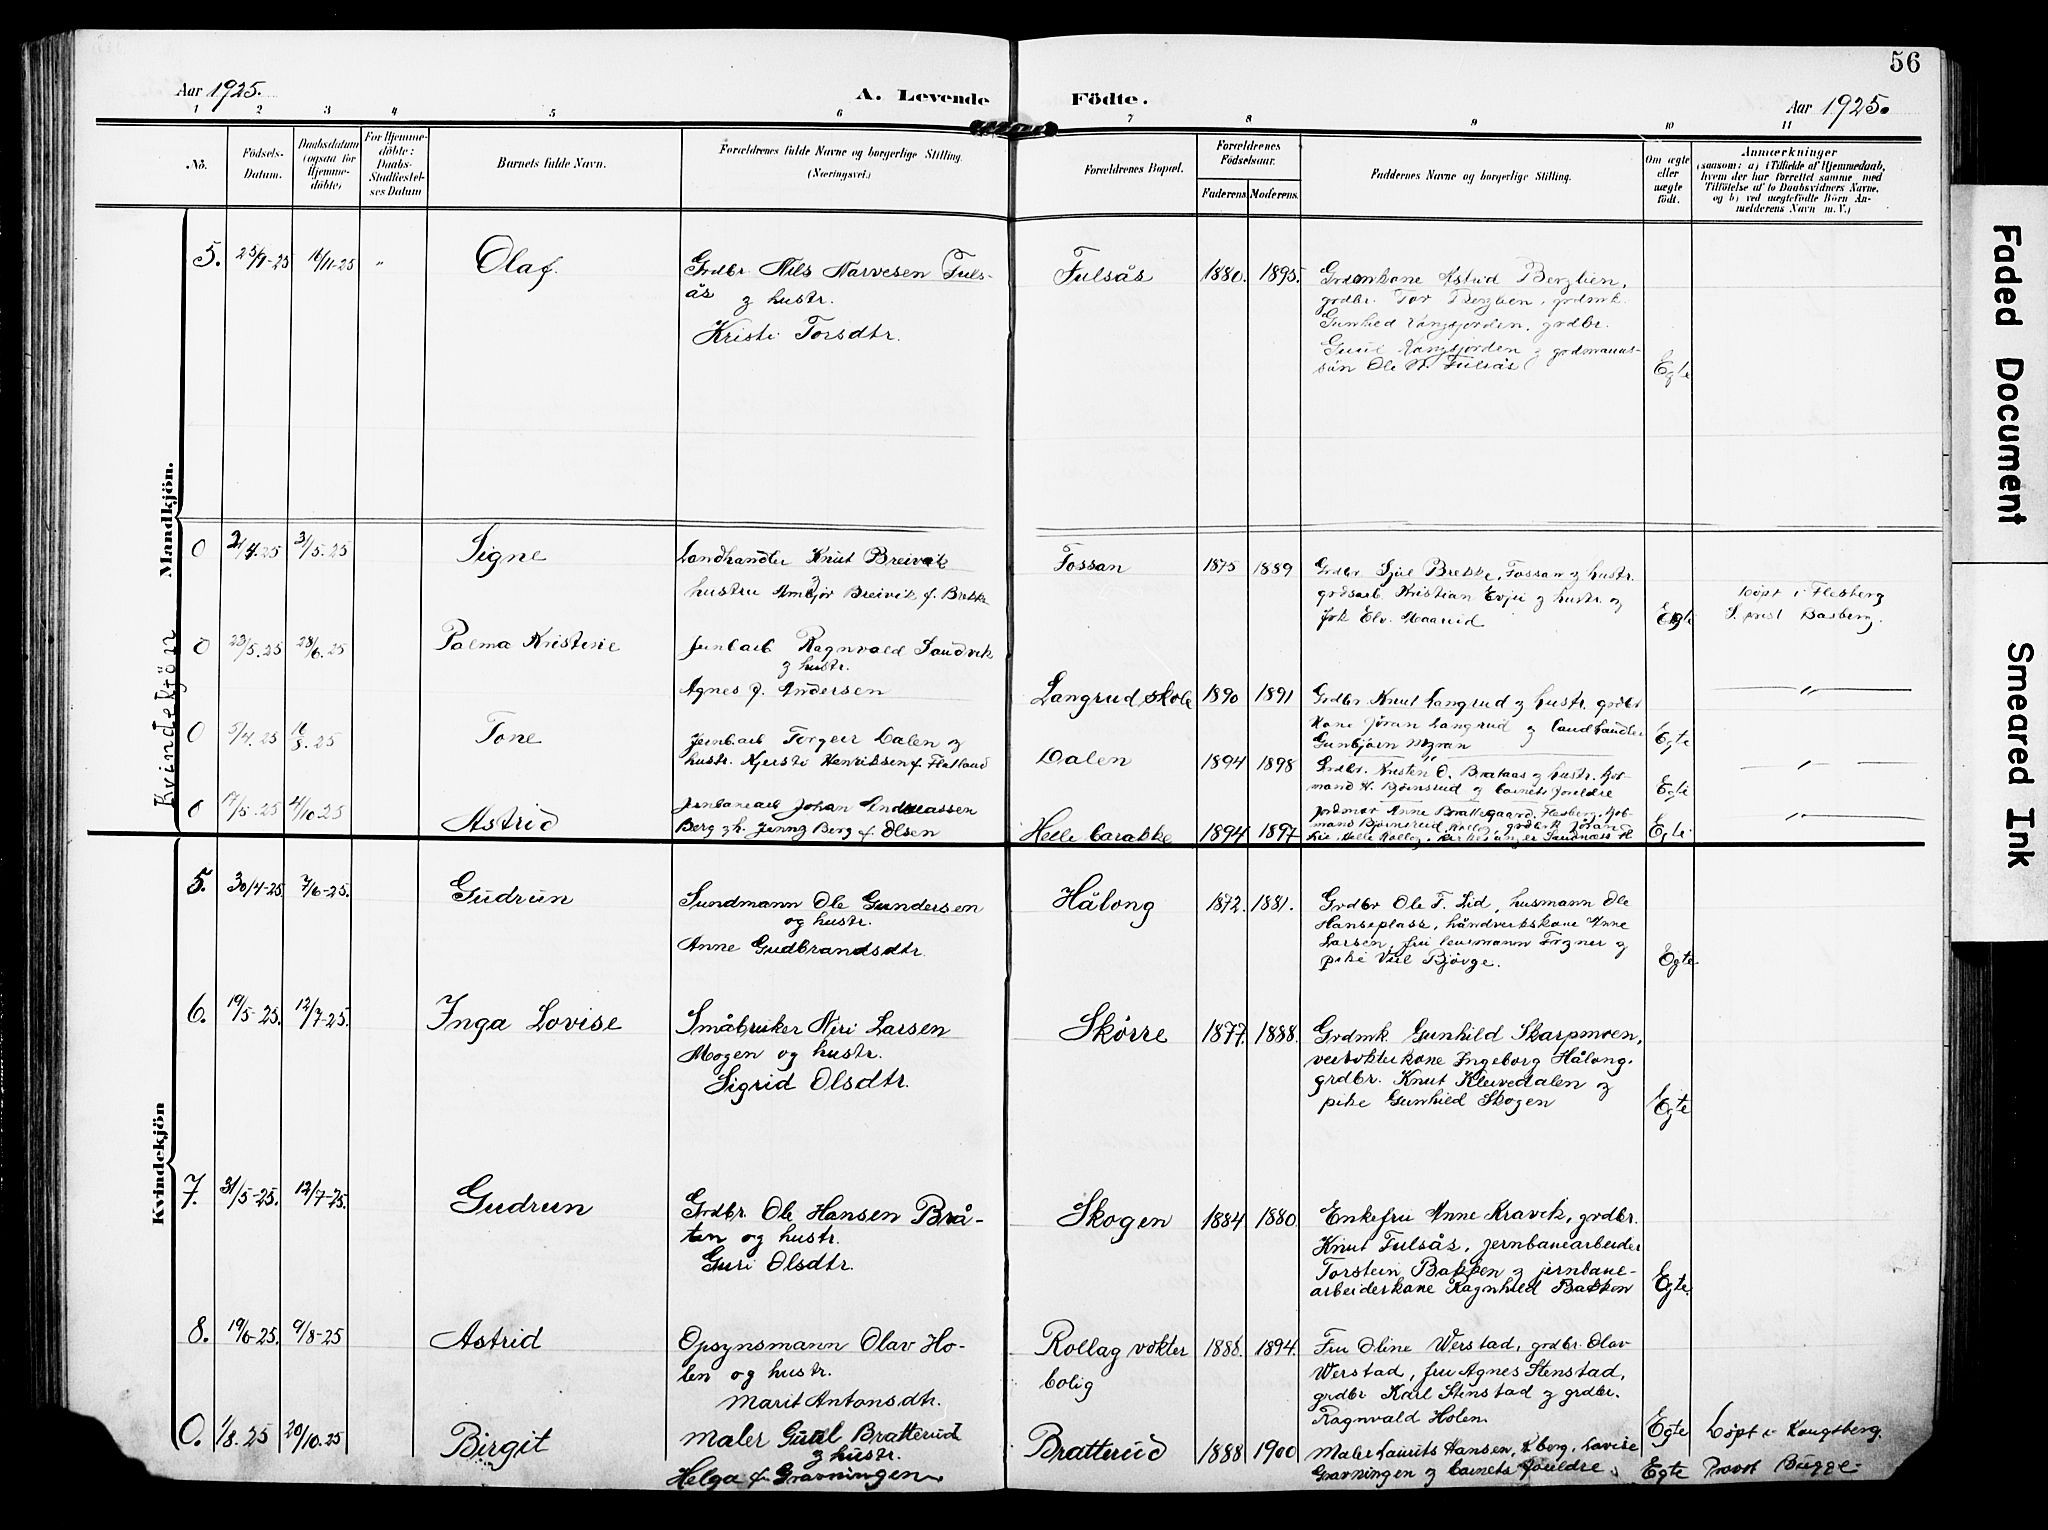 56
Aar 1925.
A. Levende Födte.
Aar 1925.
1 2 3 4 5 6 7 8 9 10 11
No.
Födsels-
Datum.
Daabsdatum
(ogsaa for
Hjemme-
döbte)
For Hjemme-
döbte:
Daabs-
Stadfæstel-
ses Datum
Barnets fulde Navn.
Forældrenes fulde Navne og borgerlige Stilling.
(Næringsvei.)
Forældrenes Bopæl.
Forældrenes
Födselsaar.
Faderens Moderens.
Faddernes Navne og borgerlige Stilling.
Om ægte
eller
uægte
födt.
Anmærkninger
(saasom: a) i Tilfælde af Hjemmedaab,
hvem der har forrettet samme med
Tilföielse af to Daabsvidners Navne,
og b) ved uægtefödte Börn An-
melderens Navn m. V.)
Mandkjön.
5. 25/9-25 11/11-25 " Olaf.
Grdbr. Nils Narvesen Fuls-
ås & hustr.
Kristi Torsdtr.
Fulsås 1880. 1895.
Grdmkone Astrid Berglien,
grdbr. Tor Berglien, grdmk.
Gunhild Vangsjorden, grdbr.
Guul Vangsjorden & grdmanns-
sön Ole N. Fulsås
Egte
Kvindekjön
0 21/4.25 31/5.25 Signe
Landhandler Knut Breivik
hustru Breivik f. Brekke
Fossan 1875 1889
Grdbr Sjul Brekke, Fossan & hustr.
grdsarb Kristian Evju & hustr. &
frk Elv. Maarud
Egte
Döpt i Flesberg
S. prest Basberg.
0 23/5.25 28/6.25 Palma Kristine
Jernbarb Ragnvald Sandvik
& hustr.
Agnes f. Andersen
Langrud skole 1890 1891
Grdbr Knut Langrud & hustr. grdbr
kone Jöran Langrud & landhandler
Gunbjörn Moran
Egte
"
0 5/4.25 16/8.25 Tone
Jernbarb Torgeir Dalen &
hustr. Kjersti Henriksen f. Flatland
Dalen 1894 1898
Grdbr. Kristen O. Brataas & hustr.
mand H. Björnsrud & barnets foreldre
Egte
"
0 17/5.25 4/10.25 Astrid
Jernbanearb Johan Andreassen
Berg & h. Jenny Berg f. Olsen
Helle barakke 1894 1897
Jordmor Anne Brattegaard, Flesberg,
mand Björnsrud, Rollag, grdbrk Jöran
Lie, Helle Rollag, kirkesanger Sandnæss Fl
Egte.
"
Kvindekjön
5. 30/4-25 7/6-25. Gudrun
Sundmann Ole Gundersen
og hustr.
Anne Gudbrandsdtr.
Hålong 1872. 1881.
Grdbr Ole T. Lid, husmann Ole
Hanseplass, håndverkskone Anne
Larsen, fru lensmann Fogner &
pike Viel Bjövge.
Egte
6. 19/5-25. 12/7-25. Inga Lovise
Småbruker Neri Larsen
Mogen og hustr.
Sigrid Olsdtr.
Skörre 1877. 1888.
Grdmk Gunhild Skarpmoen,
veivokterkone Ingeborg Hålong.
grdbr. Knut Kleivedalen &
pike Gunhild Skogen
Egte
7. 31/5-25. 12/7-25. Gudrun
Grdbr. Ole Hansen Brå-
ten og hustr.
Guri Olsdtr.
Skogen 1884 1880
Enkefru Anne Kravik, grdbr.
Knut Fulsås, jernbanearbeider
Torstein Bakken & jernbane-
arbeiderkone Ragnhild Bakken
Egte.
8. 19/6-25. 9/8-25 Astrid
Opsynsmann Olav Ho-
len og hustr.
Marit Antonsdtr.
Rollag vokter
bolig
1888. 1894.
Fru Oline Werstad, grdbr. Olav
Werstad, fru Agnes Stenstad,
grdbr Karl Stenstad & grdbr.
Ragnvald Holen
Egte
0. 1/8.25 20/10.25 Birgit
Maler Guul Bratterud
& hustr.
Helga f. Gravningen
Bratterud 1888 1900
Maler Laurits Hansen, Kberg, Lovise
Gravningen & barnets foreldre.
Egte
Döpt i Kongsberg.
Provst Bugge
Faded Document
Smeared Ink